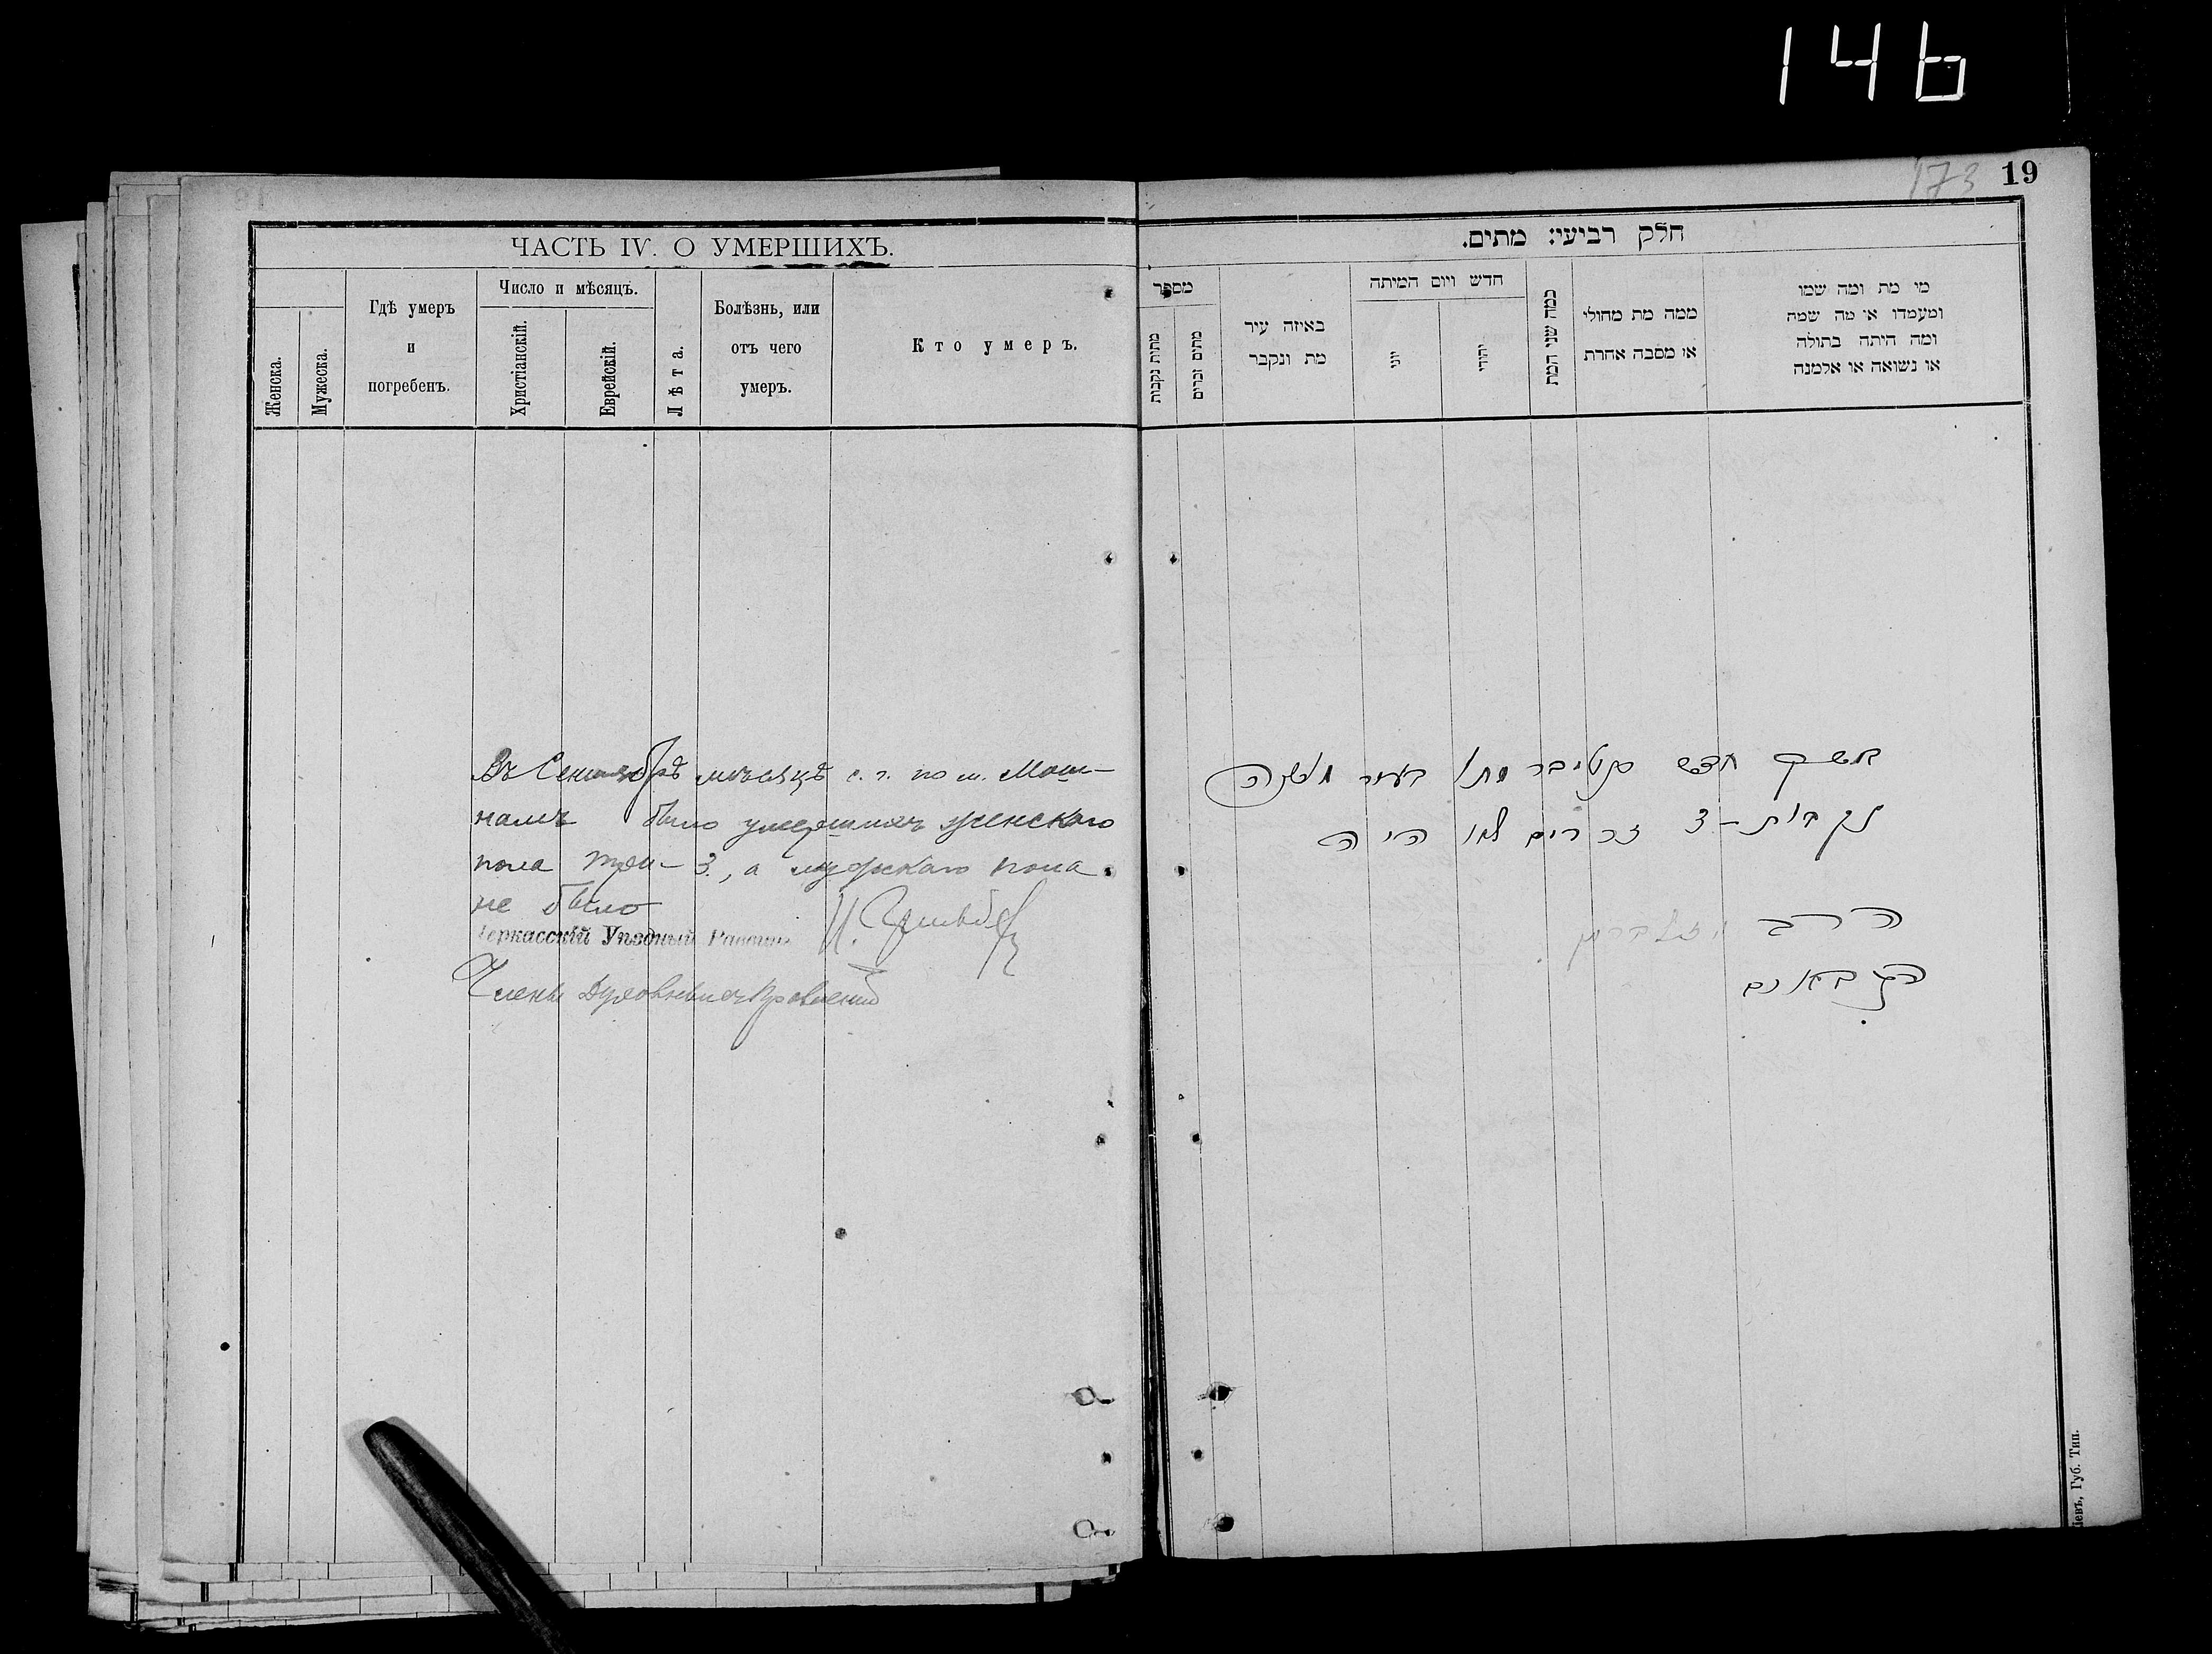 146
173 19
ЧАСТЬ IV. О УМЕРШИХЪ.
Женска.
Мужеска.
Гдѣ умеръ
и
погребенъ.
Число и мѣсяцъ.
Христіанскій.
Еврейскій.
Лѣта.
Болѣзнь, или
отъ чего
умеръ.
Кто умеръ.
Въ Сентябрѣ мѣсяцѣ с. г. по м. Мош-
намъ было умершихъ женскаго
пола три - 3, а мужскаго пола
не было
Черкасскій Уѣздный Раввинъ
Члены Духовнаго Правленія
חלק רביעי: מתים.
מספר
מתות נקבות
מתים זכרים
באיזה עיר
מת ונקבר
חדש ויום המיתה
יוני
יהודי
כמה שני המת
ממה מת מחולי
או מסבה אחרת
מי מת ומה שמו
ומעמדו או מה שמה
ומה היתה בתולה
או נשואה או אלמנה
במשך חדש סנטיבר מתו בעיר
נקבות - 3 זכרים לא היה
הרב
הגבאים
Кіевъ, Губ. Тип.